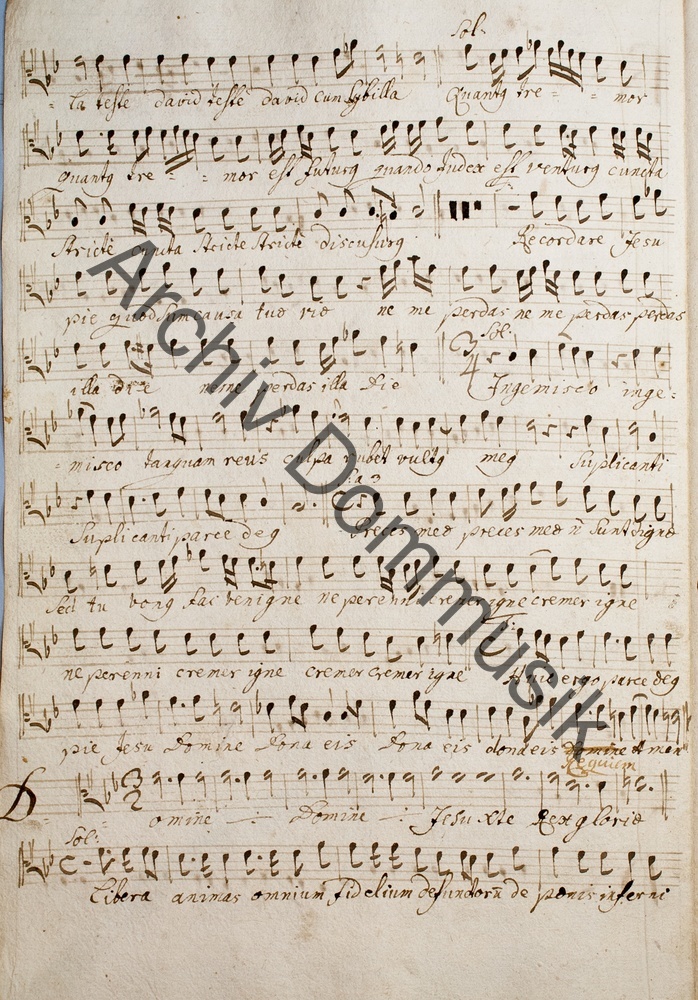 Sol:
la teste david teste david cum sybilla Quantq tre - - mor
quantq tre - - mor est futurq quando Judex est venturq cuncta
stricte cuncta stricte stricte discusurq Recordare Jesu
pie quod sum causa tuæ viæ ne me perdas ne me perdas perdas
Sol:
illa die ne me perdas illa die Ingemisco inge-
misco tanquam reus culpa rubet vultq meq Suplicanti
Suplicanti parce deq Preces meæ preces meæ n̄ sunt dignæ
Sed tu bonq fac benigne ne perenni cremer igne cremer igne
ne perenni cremer igne cremer cremer igne Huic ergo parce deq
pie Jesu Domine Dona eis Dona eis dona eis Amen
Requiem
Domine Domine Jesu Xte Rex gloriæ
Sol:
Libera animas omnium fidelium defunctorū de pœnis inferni
Archiv Dommusik